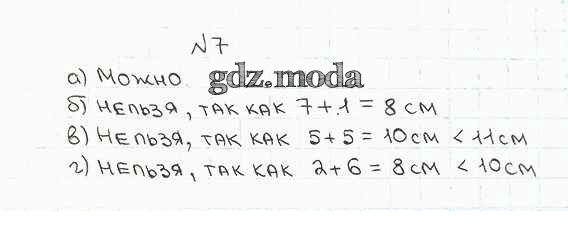 №7
а) Можно. gdz.moda
б) нельзя, так как 7+1 = 8 см
в) Нельзя, так как 5+5 = 10 см < 11 см
г) нельзя, так как 2+6 = 8 см < 10 см